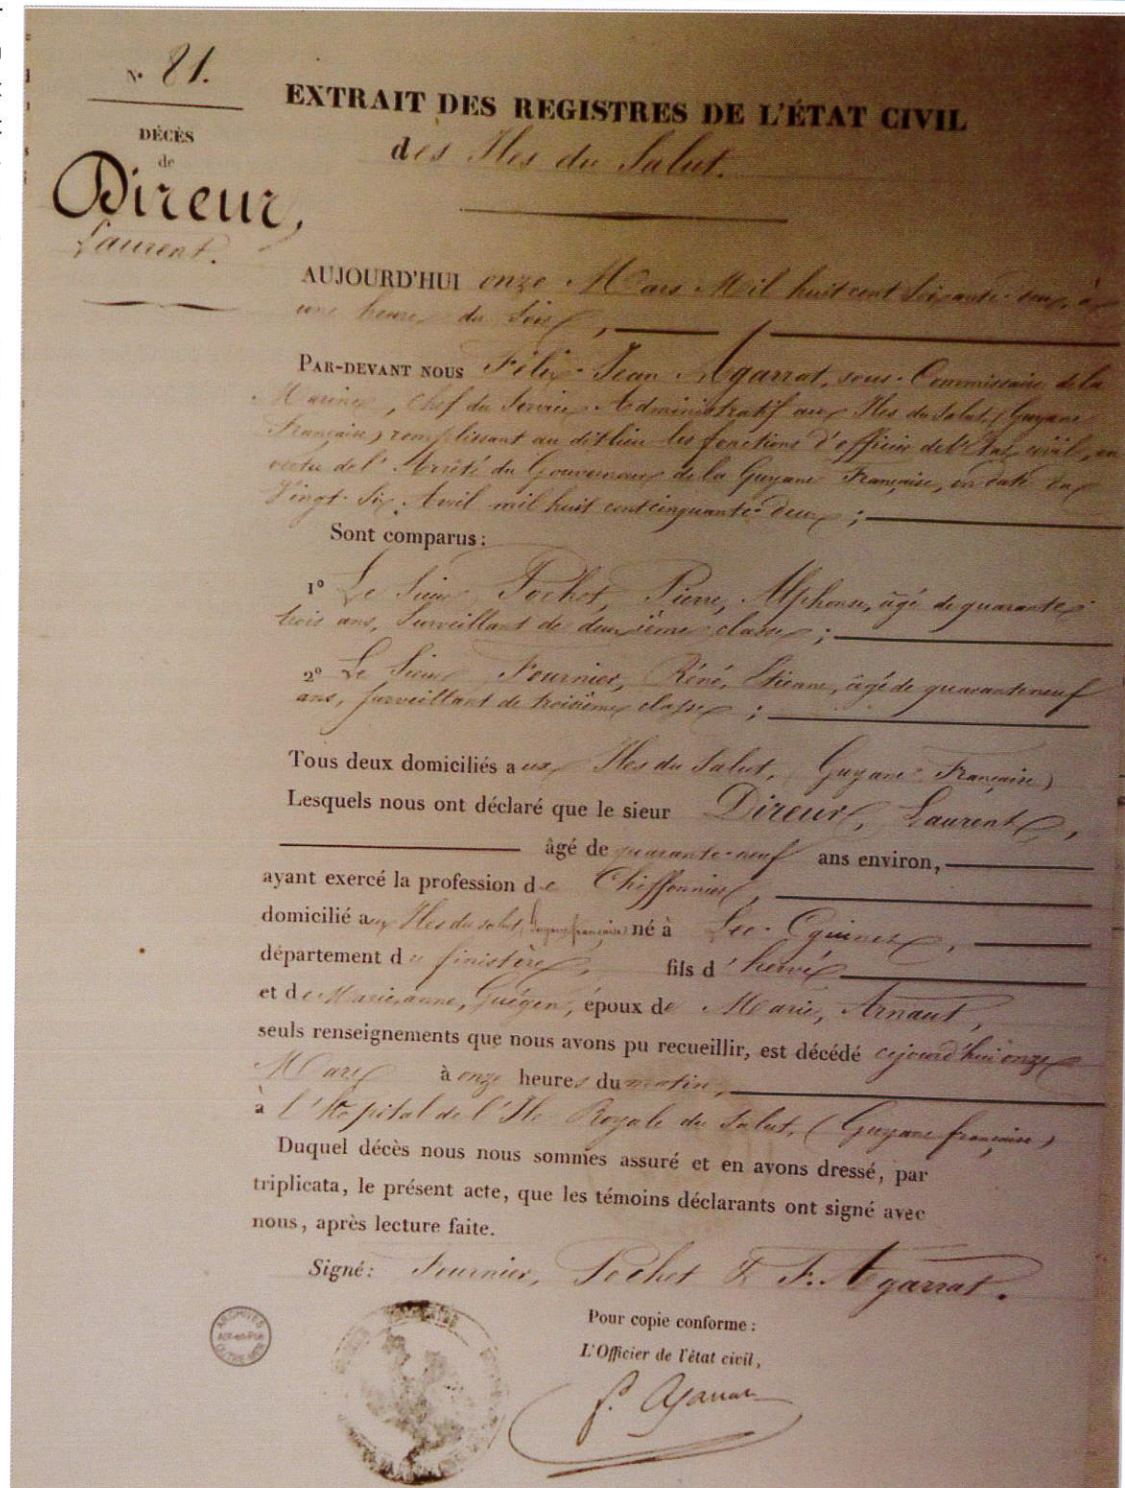 N° 81.
DÉCÈS
de
Direur,
Laurent.
EXTRAIT DES REGISTRES DE L'ÉTAT CIVIL
des Iles du Salut.
AUJOURD'HUI onze Mars Mil huit cent Soixante à
une heure du Soir,
PAR-DEVANT NOUS Félix Jean Agarrat, sous-Commissaire de la
Marine, Chef du Service Administratif aux Iles du Salut (Guyane
Française) remplissant au dit lieu les fonctions d'officier de l'Etat civil, en
vertu de l'Arrêté du Gouverneur de la Guyane Française, en date du
Vingt Six Avril mil huit cent cinquante deux ;
Sont comparus :
1° Le Sieur Pochot, Pierre, Alphonse, âgé de quarante
trois ans, Surveillant de deuxième classe ;
2° Le Sieur Fournier, Réné, Etienne, âgé de quarante neuf
ans, surveillant de troisième classe ;
Tous deux domiciliés aux Iles du Salut, (Guyane Française)
Lesquels nous ont déclaré que le sieur Direur, Laurent,
âgé de quarante-neuf ans environ,
ayant exercé la profession de Chiffonnier,
domicilié aux Iles du salut, (guyane française) né à Loc-Eguinez,
département du finistère, fils d'hervé
et de Marie, anne, Guégen, époux de Marie, Arnaut,
seuls renseignements que nous avons pu recueillir, est décédé cejourd'hui onze
Mars à onze heures du matin,
à l'Hôpital de l'Ile Royale du Salut, (Guyane française)
Duquel décès nous nous sommes assuré et en avons dressé, par
triplicata, le présent acte, que les témoins déclarants ont signé avec
nous, après lecture faite.
Signé : Fournier, Pochot & F. Agarrat.
Pour copie conforme :
L'Officier de l'état civil,
F. Agarrat
ARCHIVES
D'OUTRE-MER